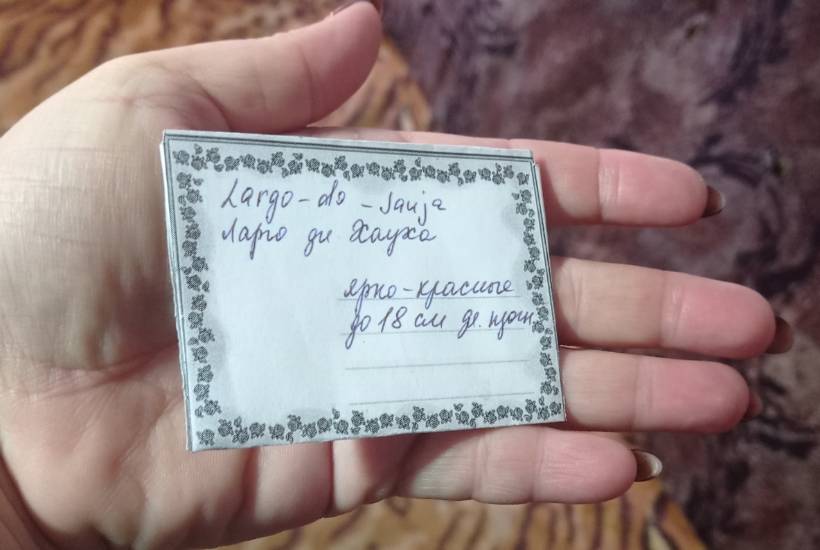 Largo-do-Jauja
Ларго ди Хауха
ярко-красные
до 18 см дл.